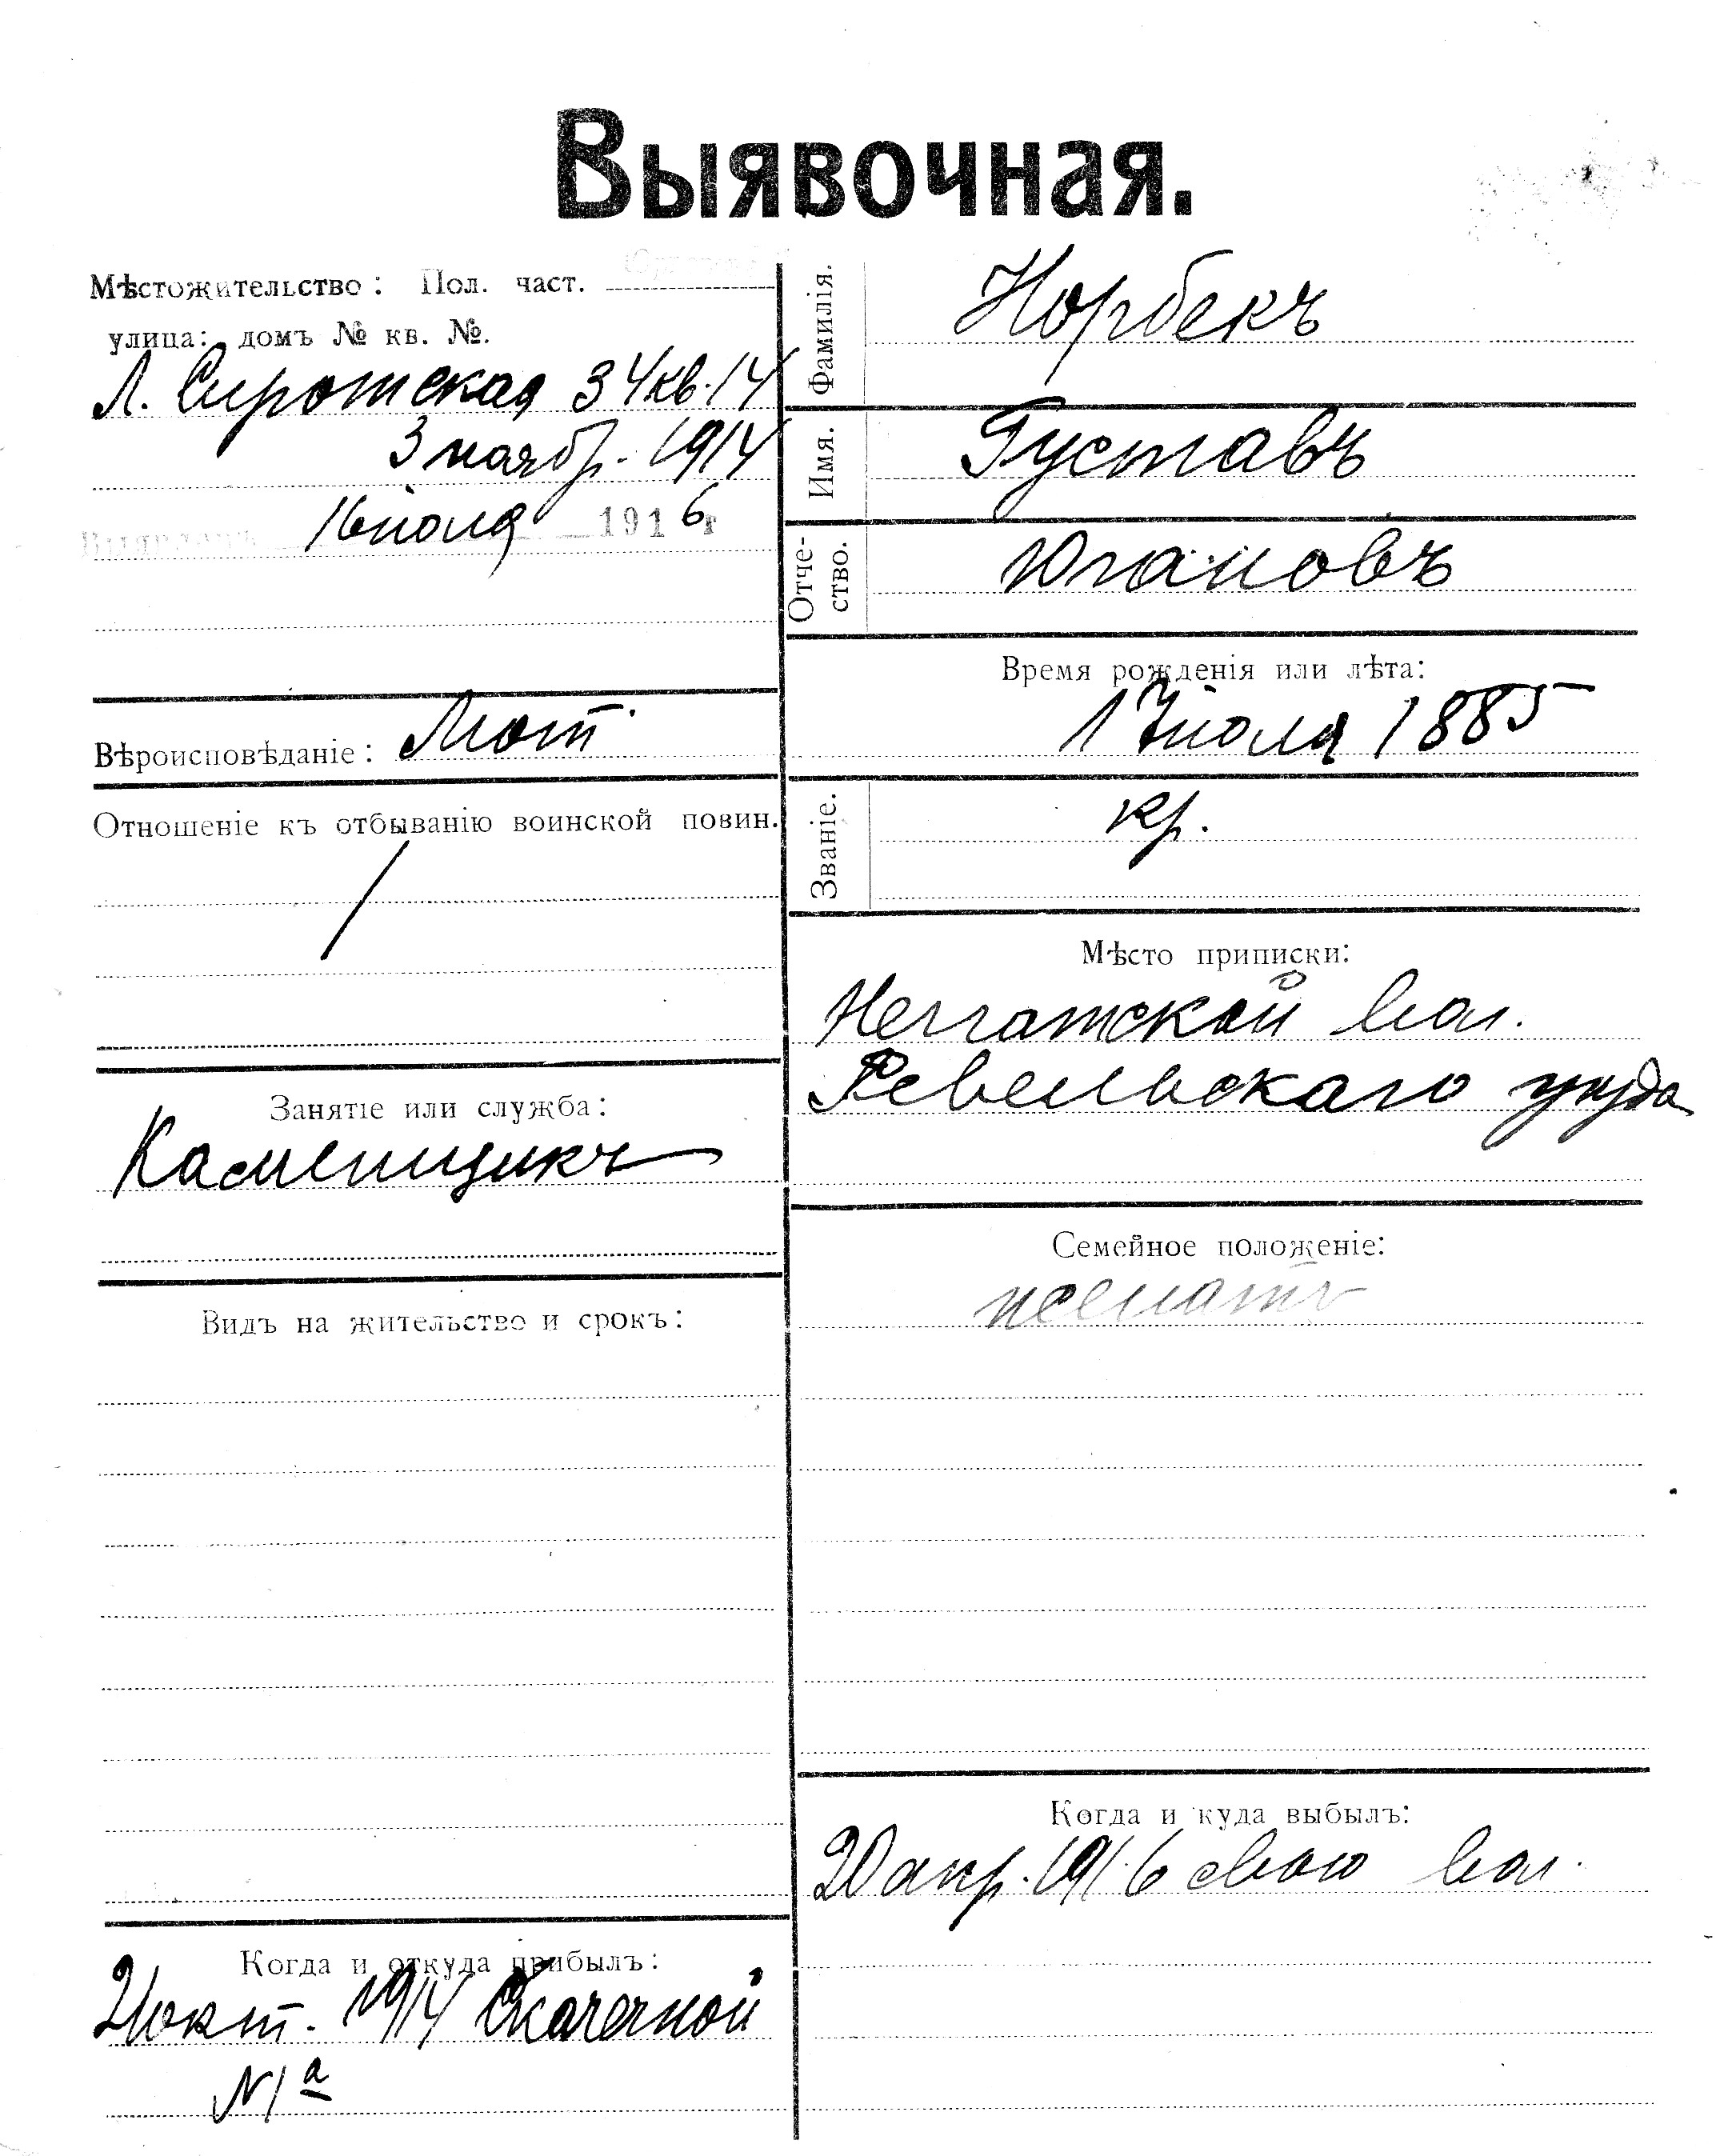 Выявочная.
Мѣстожительство: Пол. част.
улица: домъ № кв. №.
Л. Сиротская 34 кв. 14
3 ноябр. 1914
Выявленъ 16 июля 1916 г
Вѣроисповѣданіе: Лют.
Отношеніе къ отбыванію воинской повин.
Занятіе или служба:
Каменщикъ
Видъ на жительство и срокъ:
Когда и откуда прибылъ:
21 окт. 1914 Скачечной
N 1 а
Фамилія. Норбекъ
Имя. Густавъ
Отче-
ство. Югановъ
Время рожденія или лѣта:
1 Июля 1885
Званіе. кр.
Мѣсто приписки:
вол.
Ревельскаго уѣзда
Семейное положеніе:
неженатъ
Когда и куда выбылъ:
20 апр. 1916 свою вол.